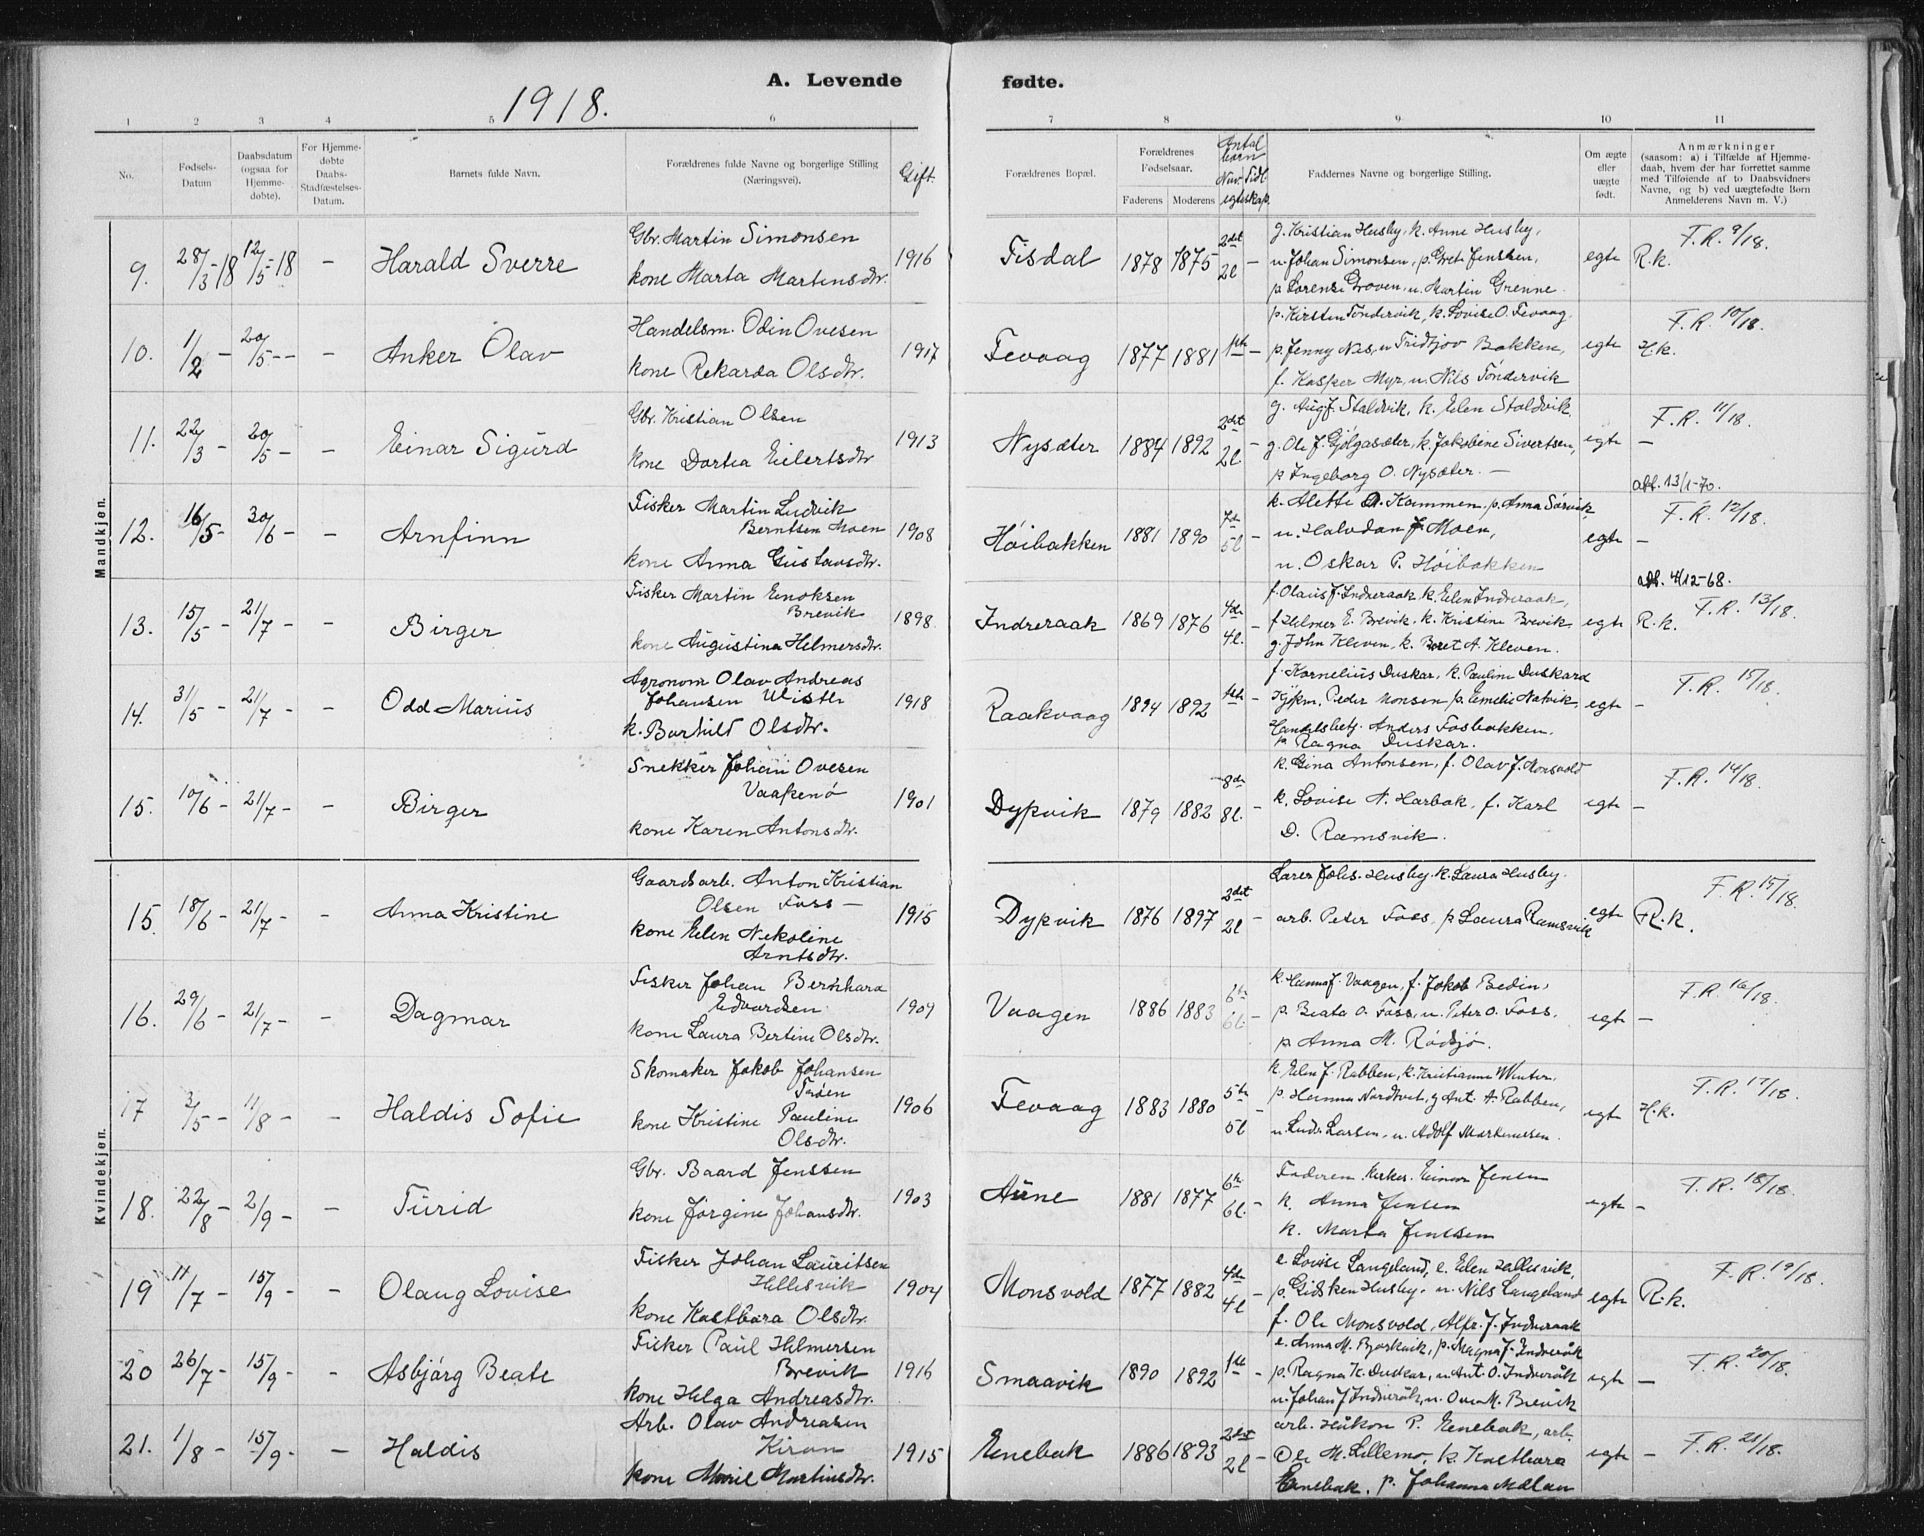 A. Levende fødte.
1918.
1 2 3 4 5 6 7 8 9 10 11
No.
Fødsels-
Datum
Daabsdatum
(ogsaa for
Hjemme-
døbte).
For Hjemme-
døbte
Daabs-
Stadfæstelses-
Datum.
Barnets fulde Navn.
Forældrenes fulde Navne og borgerlige Stilling
(Næringsvei).
Gift.
Forældrenes Bopæl.
Forældrenes
Fødselsaar.
Faderens Moderens
Antal
barn
Nuv. Tidl.
egteskap.
Faddernes Navne og borgerlige Stilling.
Om ægte
eller
uægte
født.
Anmærkninger
(saasom: a) i Tilfælde af Hjemme-
daab, hvem der har forrettet samme
med Tilføiende af to Daabsvidners
Navne, og b) ved uægtefødte Børn
Anmelderens Navn m. V.)
Mandkjøn.
9. 28/3-18 12/5-18 - Harald Sverre
Gbr. Martin Simonsen
kone Marta Martinsdtr.
1916 Fisdal 1878 1875 2det 2l -
g. Kristian Husby, k. Anne Husby,
u. Johan Simonsen, p. Gret Jensen,
p Lorense Groven, u. Martin Grenne.
egte R.k. F.R. 9/18.
10. 1/2 - 20/5 -- - Anker Olav
Handelsm. Odin Ovesen
kone Rekarda Olsdtr.
1917 Fevaag 1877 1881 1ste -
p. Kirsten Tøndervik, k. Lovise O. Fevaag,
p. Jenny Nes, u Fridtjov Bakken,
f. Kasper Myr, u. Nils Tøndervik
egte H.k. F.R. 10/18.
11. 22/3 - 20/5 - - Einar Sigurd
Gbr. Kristian Olsen
kone Dortea Eilertsdtr
1913 Nysæter 1884 1892 2det 2l. -
g. Aug. J. Staldvik, k. Elen Staldvik.
g. Ole J. Gjølgasæter, k. Jakobine Sivertsen,
p Ingeborg O. Nysæter. -
egte - F.R. 11/18.
att. 13/1-70.
12. 16/5 - 30/6 - - Arnfinn
Fisker Martin Ludvik
Berntsen Moen
kone Anna Gustavsdtr.
1908 Høibakken 1881 1890 7de 5l -
k. Alette Kammen, p. Anna Sørvik,
u. Halvdan J. Moen,
u. Oskar P. Høibakken
egte - F.R. 12/18.
att. 4/12-68.
13. 15/5 - 21/7 - - Birger
Fisker Martin Enoksen
Brevik
kone Augustina Helmersdtr.
1898 Indreraak 1869 1876 4de 4l. -
f. Olaus J. Indreraak, k. Elen Indreraak,
f Helmer E. Brevik, k. Kristine Brevik
g. John Kleven, k. Beret A. Kleven.
egte R.k. F.R. 13/18.
14. 31/5 - 21/7 - - Odd Marius
Agronom Olav Andreas
Johansen Wisth
k. Borhild Olsdtr.
1918 Raakvaag 1894 1892 1ste -
f. Kornelius Duskar, k. Pauline Duskard
Kjøpm. Peder Monsen p. Emelie Natvik,
Handelsbetj. Anders Fosbakken.
p. Ragna Duskar.
egte - F.R. 15/18.
15. 10/6 - 21/7 - - Birger
Snekker Johan Ovesen
Vaapenø
kone Karen Antonsdtr.
1901 Dypvik 1879 1882 8de 8l. -
k. Gina Antonsen, f. Olav J. Monsvold
k. Lovise N. Harbak, f. Karl
D. Ramsvik.
egte - F.R. 14/18.
Kvindekjøn.
15. 18/6 - 21/7 - - Anna Kristine
Gaardsarb. Anton Kristian
Olsen Foss -
kone Elen Nekoline
Arntsdtr.
1915 Dypvik 1876 1897 2det 2l -
Lærer Johs. Husby, k. Laura Husby.
arb. Peter Foss, p Laura Ramsvik
egte R.k. F.R. 15/18.
16. 29/6 - 21/7 - - Dagmar
Fisker Johan Bernhard
Edvardsen
kone Laura Bertine Olsdtr.
1907 Vaagen 1886 1883 6te 6l. -
k. Hanna J. Vaagen, f. Jakob Bedin,
p. Beata O. Foss, u. Peter O. Foss.
p Anna M. Rødsjø.
egte - F.R. 16/18.
17 3/5 - 11/8 - - Haldis Sofie
Skomaker Jakob Johansen
kone Kristine Pauline
Olsdtr.
1906 Fevaag 1883 1880 5te 5l -
k. Elen J. Rabben, k. Kristianne Winter,
p. Hanna Nordtvet, g Ant. A. Rabben,
u. Ludv. Larsen, u. Adolf Martinussen.
egte H.k. F.R. 17/18.
18. 22/8 - 2/9 - - Turid
Gbr. Baard Jenssen
kone Jørgine Johansdtr.
1903 Aune 1881 1877 6te 6l. -
Faderen. kirkes. Einar Jensen
k. Anna Jensen
k. Marta Jenssen
egte - F.R. 18/18.
19 11/7 - 15/9 - - Olaug Lovise
Fisker Johan Lauritsen
Hellesvik
kone Kastbara Olsdtr.
1904 Monsvold 1877 1882 4de 4l -
e. Lovise Langeland, e. Elen Hellesvik,
p. Gidsken Husby, u. Nils Langeland
f. Ole Monsvold, Alfr. J. Indreraak
egte R.k. F.R. 19/18.
20 26/7 - 15/9 - - Asbjørg Beate
Fisker Paul Helmersen
Brevik
kone Helga Andreasdtr.
1916 Smaavik 1890 1892 1ste -
e. Anna M. Bjørkvik, p. Magna J. Indreråk
p. Ragna K. Duskar, u. Ant. O. Indreråk
u. Johan J Indreråk, u. Ove M. Brevik
egte - F.R. 20/18.
21. 1/8 - 15/9 - - Haldis
Arb. Olav Andreasen
Kiran
kone Marie Martinsdtr.
1915 Enebak 1886 1893 2det 2l -
arb. Håkon P. Enebak, arb.
Ole M. Lillemo, k. Kastbara
Enebak, p. Johanna Mælan
egte - F.R. 21/18.